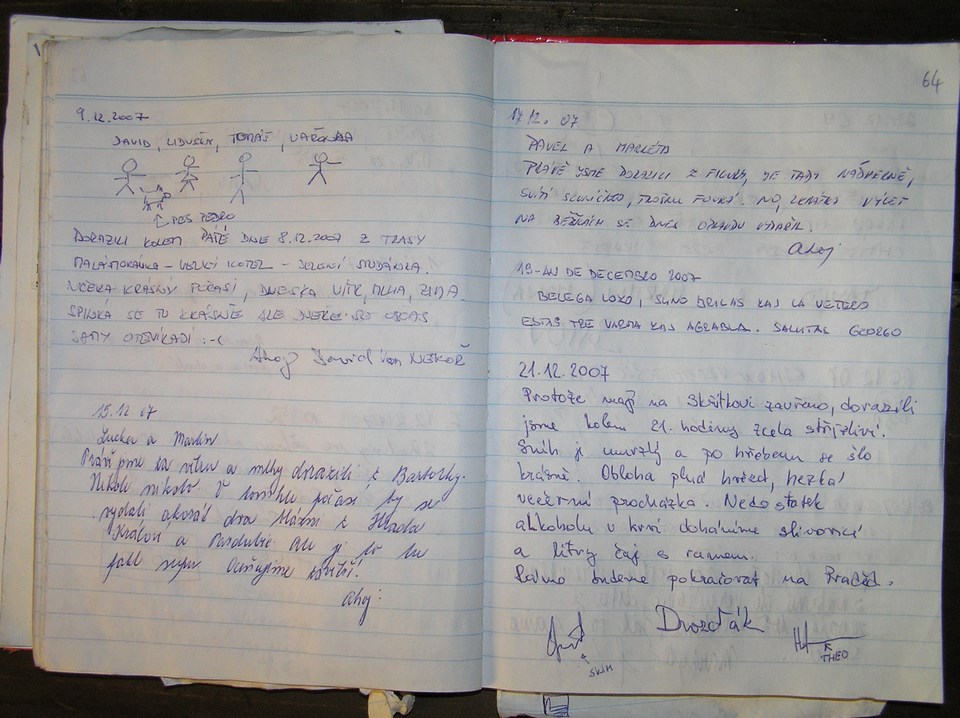 9.12.2007
DAVID, LIDUŠKA, TOMÁŠ, VAČKAŘA
PES PEDRO
DORAZILI KOLEM PÁTÉ DNE 8.12.2007 Z TRASY
MALÁ MORÁVKA – VELKÝ KOTEL – JELENÍ STUDÁNKA.
VČERA KRÁSNÝ POČASÍ, DNESKA VÍTR, MLHA, ZIMA.
SPINKÁ SE TU KRÁSNĚ ALE DVEŘE SE OBČAS
SAMY OTEVÍRAJÍ :-(
Ahoj David
15.12 07
Lucka a Martin
Právě jsme za větru a mlhy dorazili z Barborky.
Nikde nikdo. V tomhle počasí by se
vydali akorát dva blázni z Hradce
Králové a Pardubic. Ale je to tu
fakt super
Ahoj!
64
17.12. 07
PAVEL A MARKÉTA
PRÁVĚ JSME DORAZILI Z JE TADY NÁDHERNĚ,
SVÍTÍ SLUNÍČKO, TROŠKU FOUKÁ. NO, ZKRÁTKA VÝLET
NA BĚŽKÁCH SE DNES OPRAVDU VYDAŘIL.
Ahoj
19-AN DE DECEMBRO 2007
BELEGA LOKO, SUNO BRILAS KAJ LA VETERO
ESTAS TRE VARMA KAJ AGRABLA. SALUTAS GEORGO
21.12.2007
Protože mají na Skřítkovi zavřeno, dorazili
jsme kolem 21. hodiny zcela střízliví.
Sníh je umrzlý a po hřebenu se šlo
krásně. Obloha plná hvězd, hezká
večerní procházka. Nedostatek
alkoholu v krvi doháníme slivovicí
a litry čaje s rumem.
Ráno budeme pokračovat na Praděd.
Drozďák
SKIN
THEO